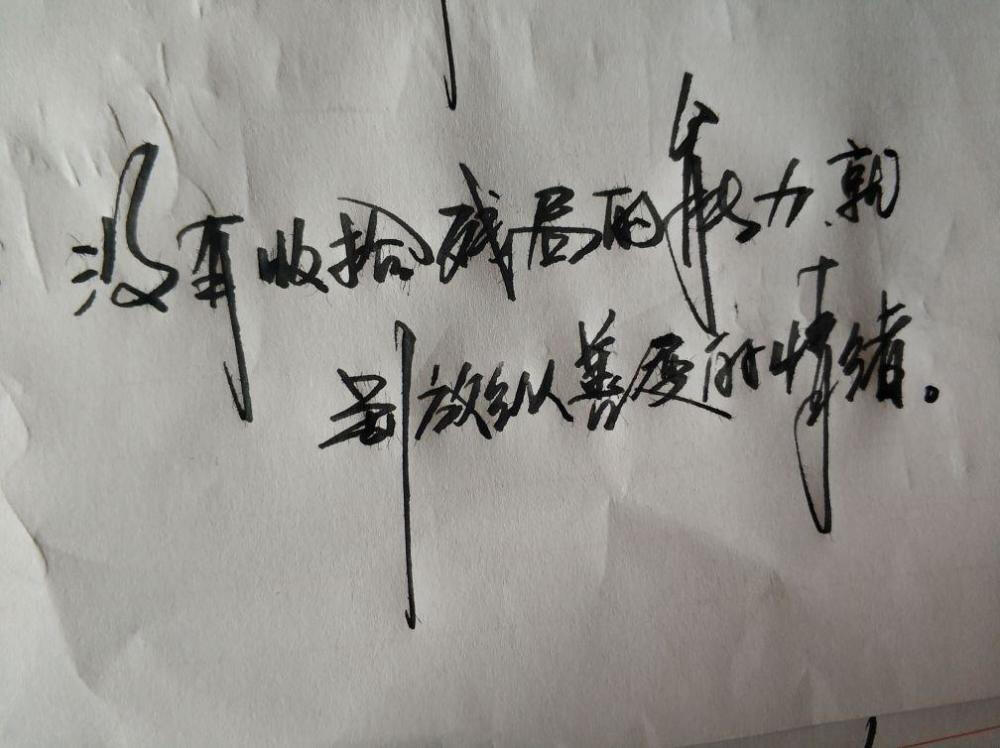 没有收拾残局的能力,就
别放纵善变的情绪。